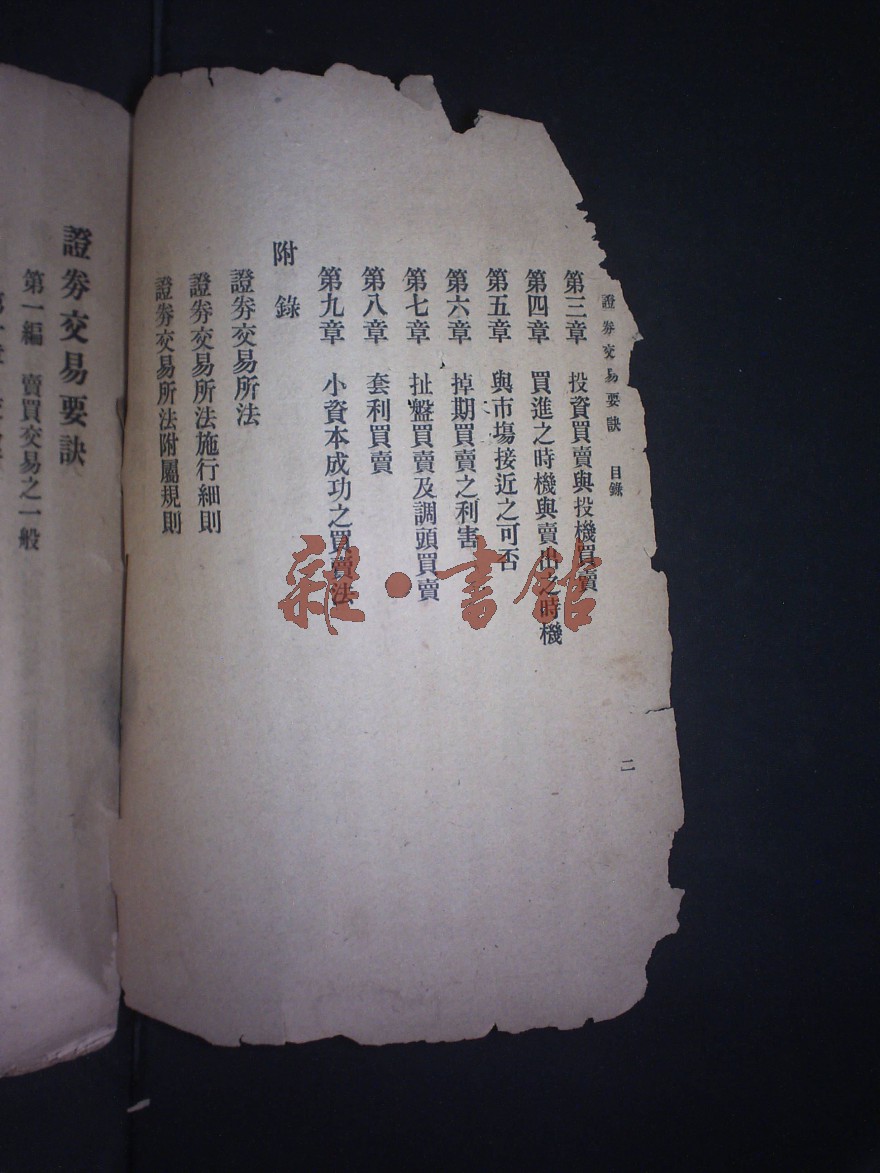 證券交易要訣 目錄
第三章 投資買賣與投機買賣
第四章 買進之時機與賣出之時機
第五章 與市場接近之可否
第六章 掉期買賣之利害
第七章 扯盤買賣及調頭買賣
第八章 套利買賣
第九章 小資本成功之買賣法
附錄
證券交易所法
證券交易所法施行細則
證券交易所法附屬規則
二
證券交易要訣
第一編 賣買交易之一般
雜·書館